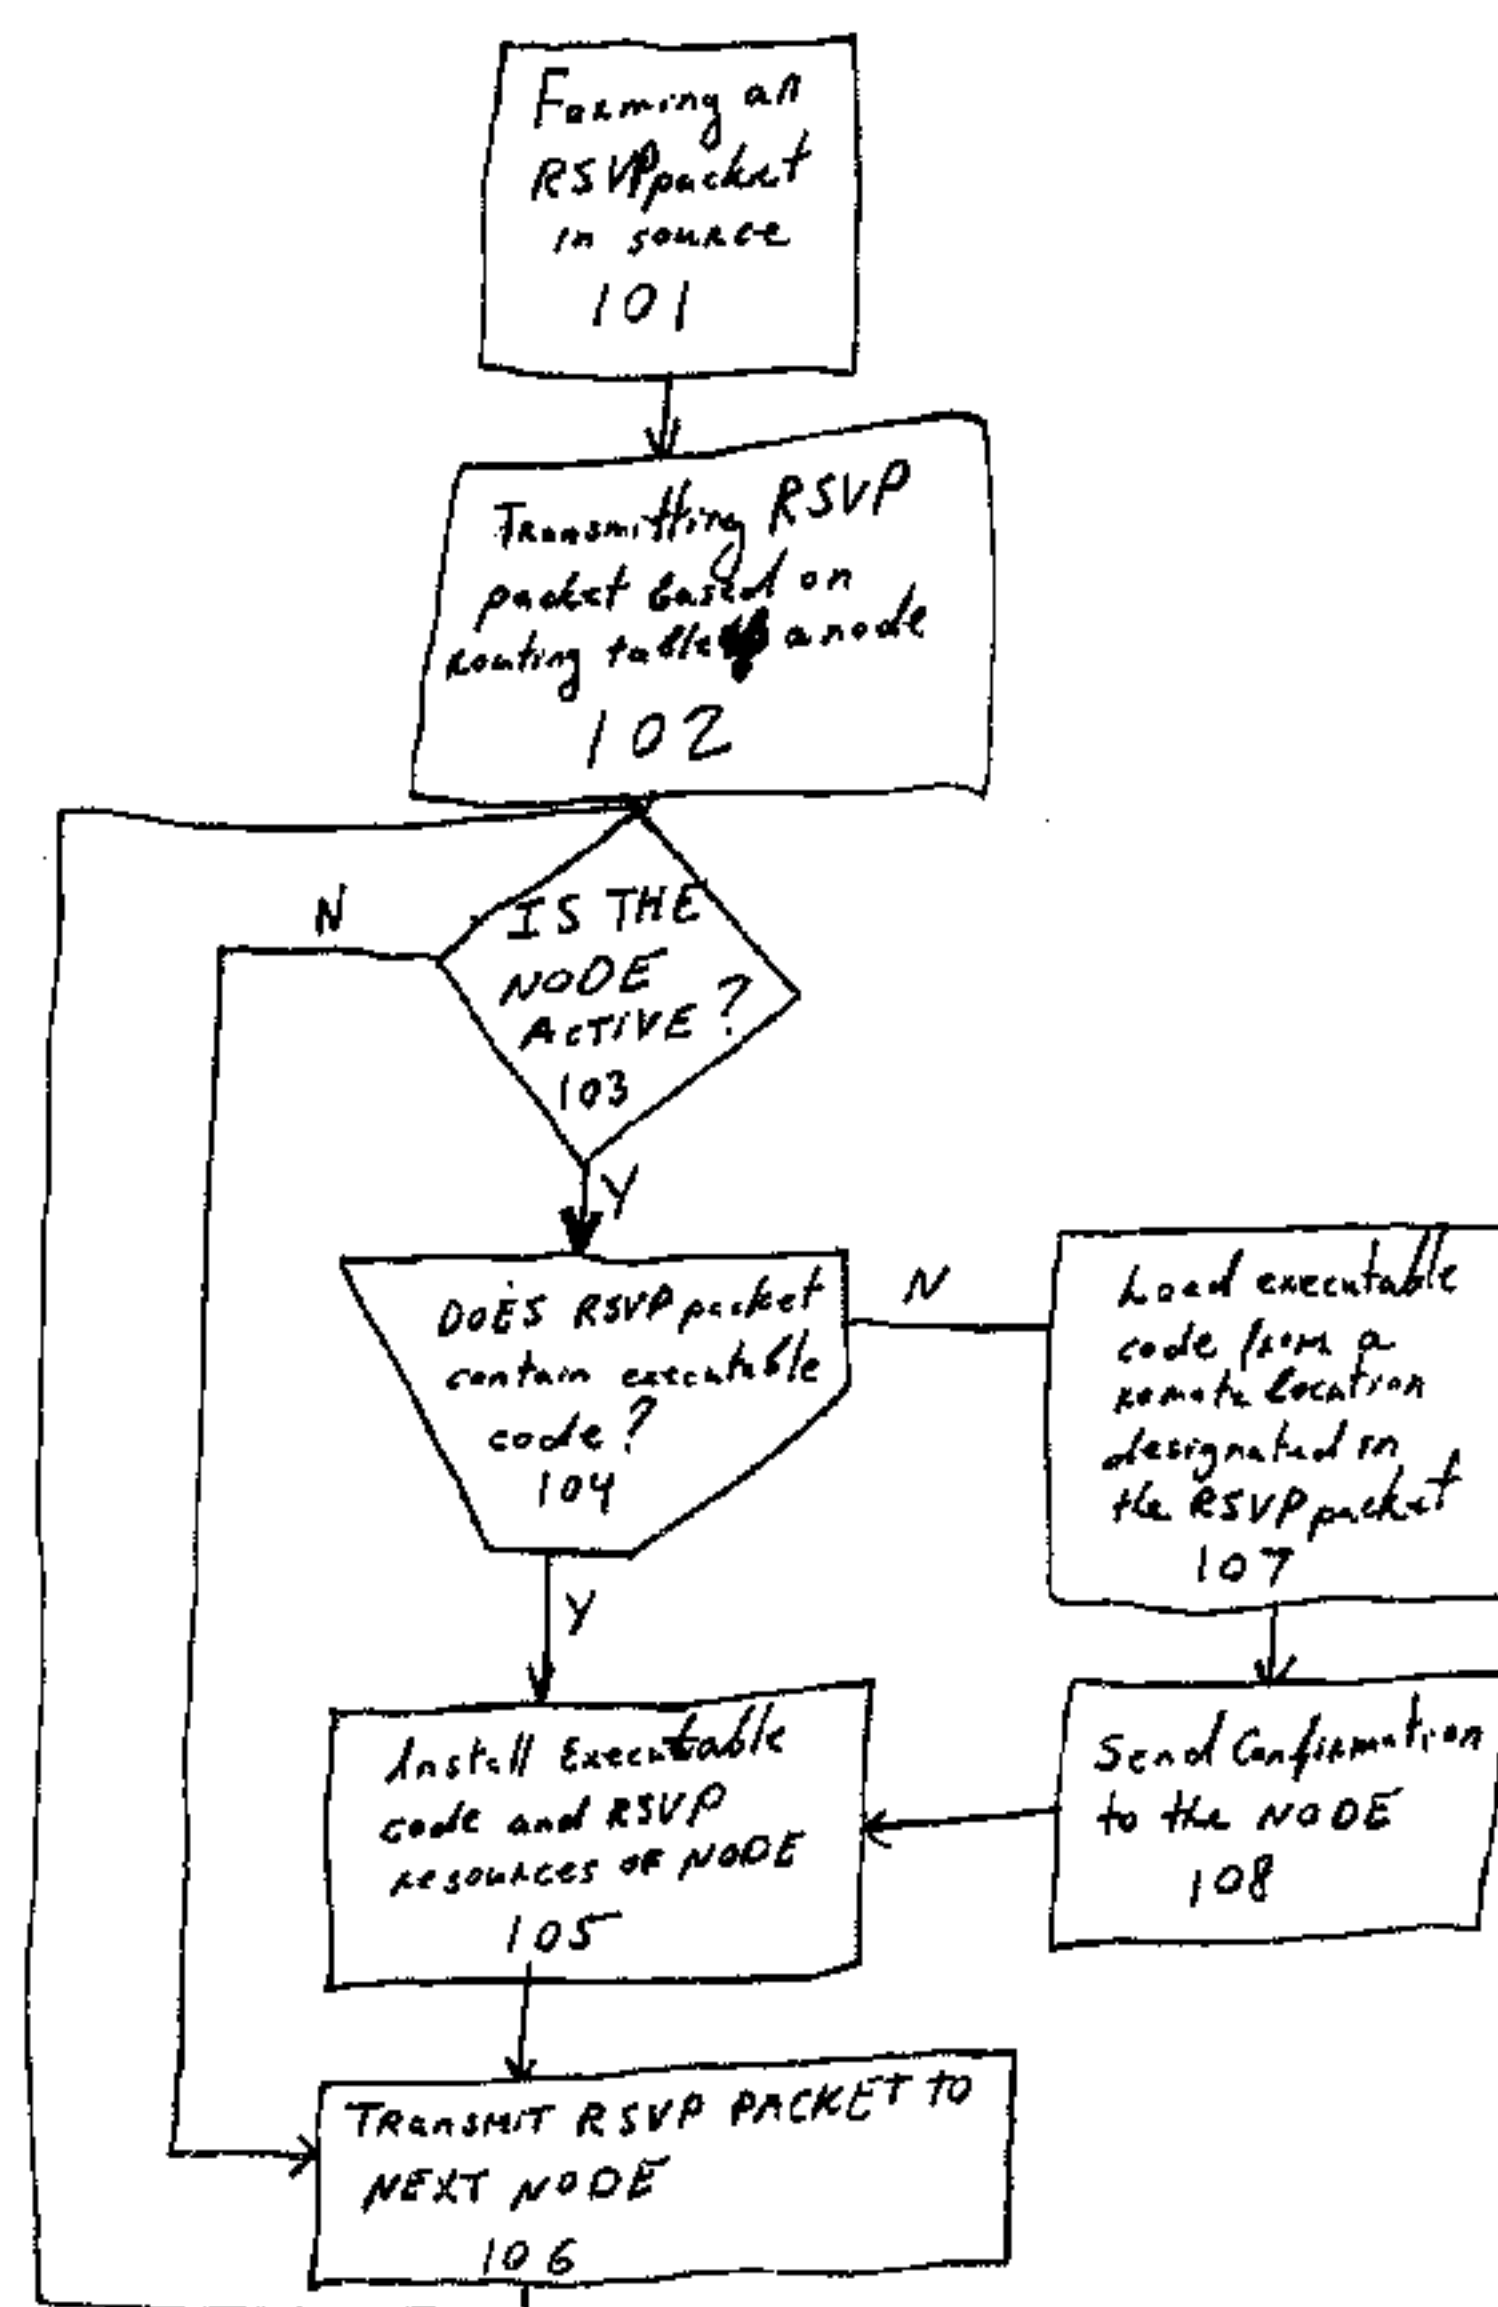 Forming an
RSVP packet
in source
101
Transmitting RSVP
packet based on
routing table a node
102
N
IS THE
NODE
ACTIVE?
103
Y
DOES RSVP packet
contain executable
code?
104
N
Load executable
code from a
remote location
designated in
the RSVP packet
107
Y
Install Executable
code and RSVP
resources of NODE
105
Send Confirmation
to the NODE
108
TRANSMIT RSVP PACKET TO
NEXT NODE
106